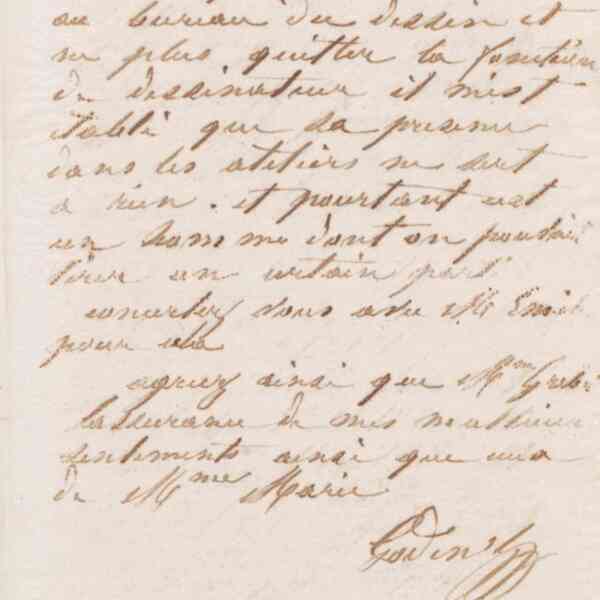 au bureau du dessin et
ne plus quitter la fonction
de dessinateur il m'est
établi que sa présence
dans les ateliers ne sert
a rien. et pourtant c'est
un homme dont on pourrait
tirer un certain parti
concertez vous avec Mr Emile
pour cela
agréez ainsi que Mme
l'assurance de mes meilleurs
sentiments ainsi que ceux
de Mme Marie
Godin